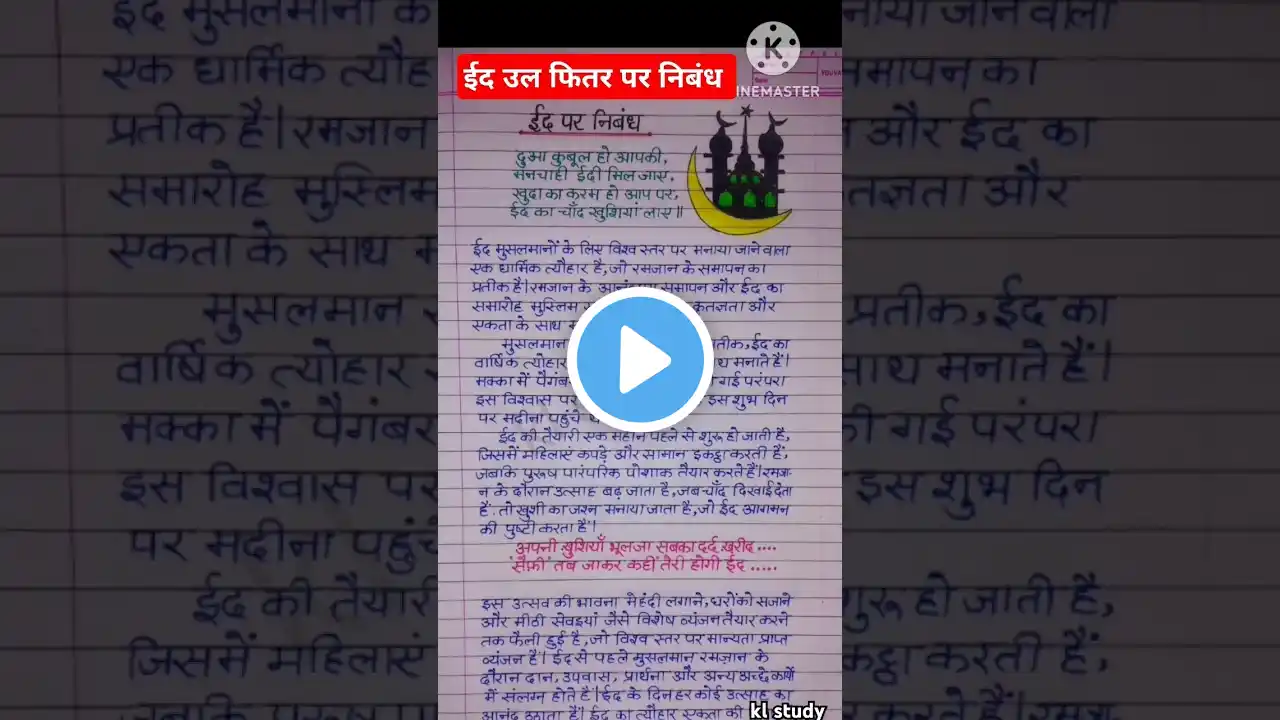 KINEMASTER
ईद उल फितर पर निबंध
ईद पर निबंध
दुआ कुबूल हो आपकी,
मनचाही ईदी मिल जाए,
खुदा का करम हो आप पर,
ईद का चाँद खुशियां लाए॥
ईद मुसलमानों के लिए विश्व स्तर पर मनाया जाने वाला
एक धार्मिक त्यौहार है, जो रमजान के समापन का
प्रतीक है। रमजान के समापन और ईद का
समारोह मुस्लिम कृतज्ञता और
एकता के साथ
मुसलमान प्रतीक, ईद का
वार्षिक त्योहार साथ मनाते हैं।
मक्का में पैगंबर की गई परंपरा
इस विश्वास पर इस शुभ दिन
पर मदीना पहुंचे
ईद की तैयारी एक महान पहले से शुरू हो जाती है,
जिसमें महिलाएं कपड़े और सामान इकट्ठा करती हैं,
जबकि पुरुष पारंपरिक पोशाक तैयार करते हैं। रमजा-
न के दौरान उत्साह बढ़ जाता है, जब चाँद दिखाई देता
है. तो खुशी का जश्न मनाया जाता है, जो ईद आगमन
की पुष्टी करता है।
अपनी ख़ुशियाँ भूल जा सबका दर्द ख़रीद ....
सैफ़ी तब जाकर कहीं तेरी होगी ईद .....
इस उत्सव की भावना मेहंदी लगाने, घरों को सजाने
और मीठी सेवइयां जैसे विशेष व्यंजन तैयार करने
तक फैली हुई है, जो विश्व स्तर पर मान्यता प्राप्त
व्यंजन है। ईद से पहले मुसलमान रमज़ान के
दौरान दान, उपवास, प्रार्थना और अन्य अच्छे कार्यों
में संलग्न होते हैं। ईद के दिन हर कोई उत्साह का
आनंद उठाता है। ईद का त्यौहार एकता की
kl study